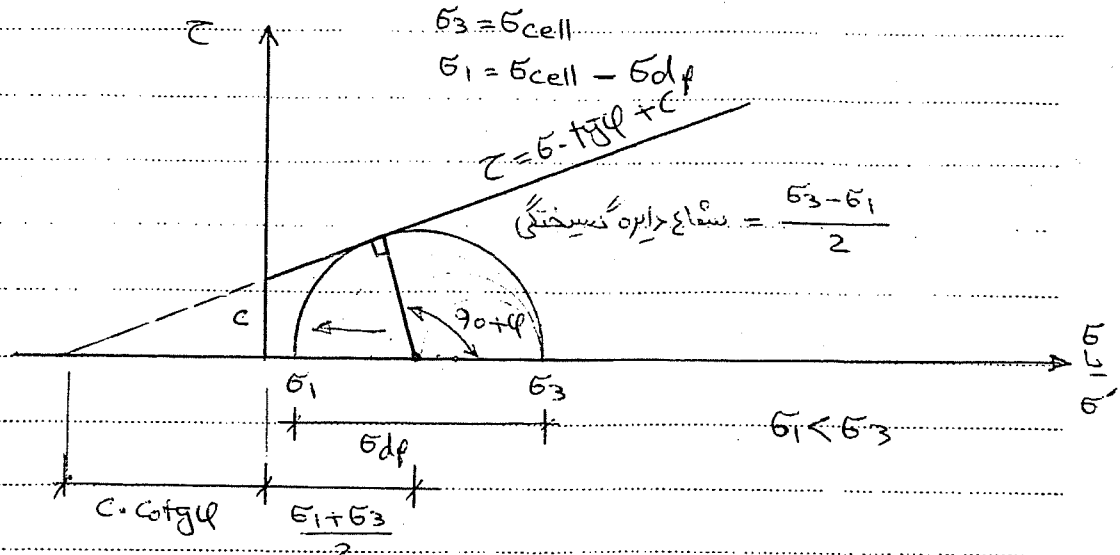 τ
σ3 = σcell
σ1 = σcell - σdf
τ = σ·tgφ + C
شعاع دایره گسیختگی = (σ3 - σ1) / 2
C
90+φ
σ
یا
σ'
σ1
σ3
σdf
σ1 < σ3
C·Cotgφ
(σ1 + σ3) / 2